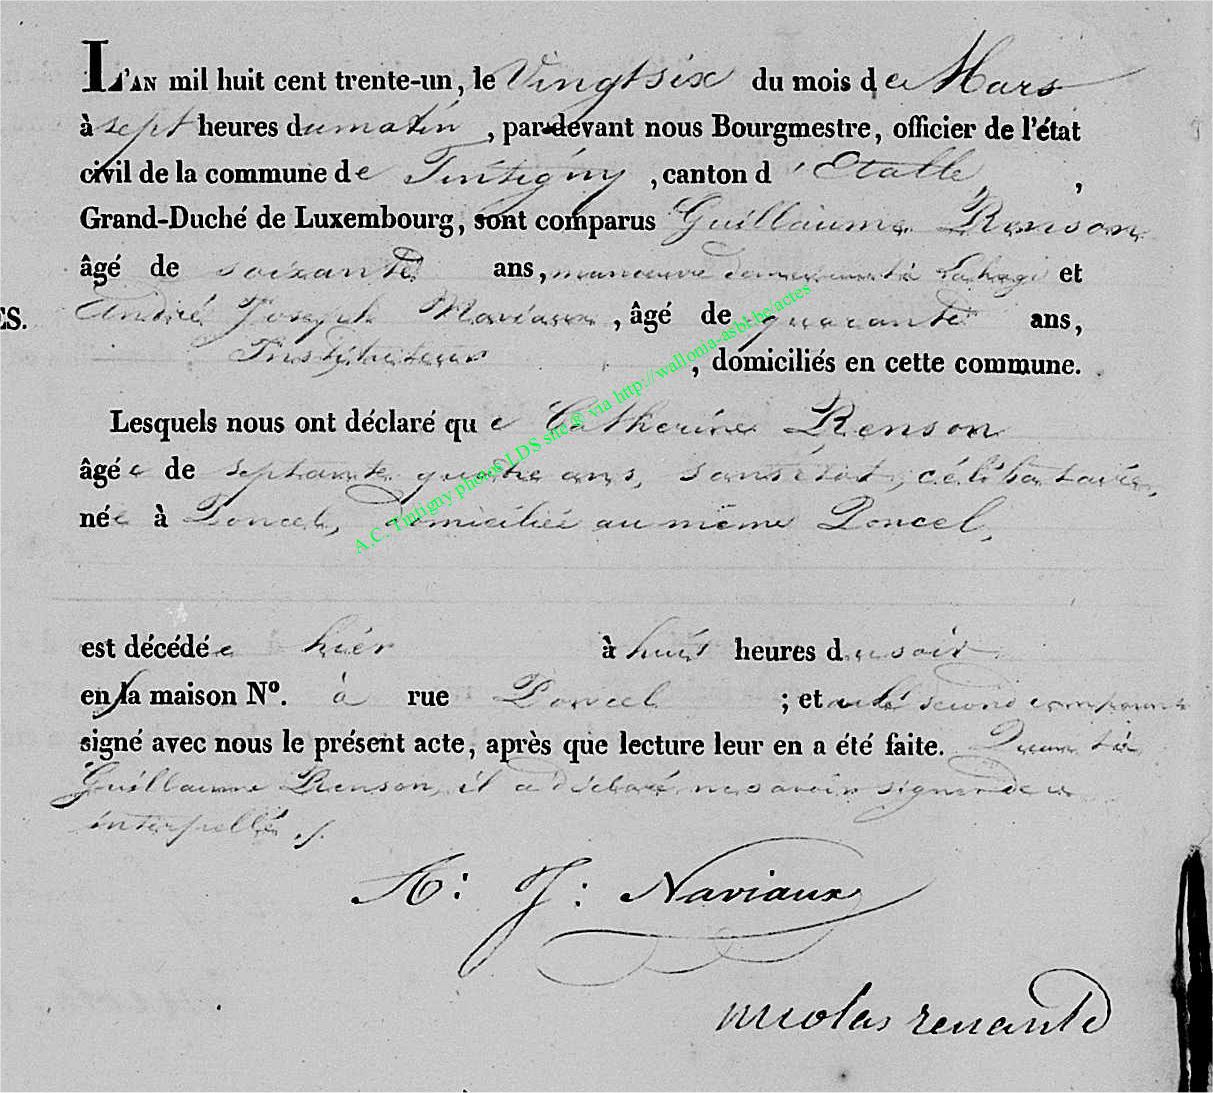 L'AN mil huit cent trente-un, le Vingt six du mois de Mars
à sept heures du matin, par-devant nous Bourgmestre, officier de l'état
civil de la commune de Tintigny, canton d'Etalle,
Grand-Duché de Luxembourg, sont comparus Guillaume Renson
âgé de soixante ans, manoeuvre demeurant à Lahage et
ES.
André Joseph Naviaux, âgé de quarante ans,
Instituteur, domiciliés en cette commune.
Lesquels nous ont déclaré que Catherine Renson
âgée de septante quatre ans, sans état, célibataire,
née à Poncel, domiciliée au même Poncel,
est décédée hier à huit heures du soir
en la maison Nº. à rue Poncel ; et le second comparant
signé avec nous le présent acte, après que lecture leur en a été faite. Quant à
Guillaume Renson, il a déclaré ne savoir signer de ce
interpellé ./.
A: J: Naviaux
nicolas renauld
A.C. Tintigny photos LDS site © via http://wallonia-asbl.be/actes